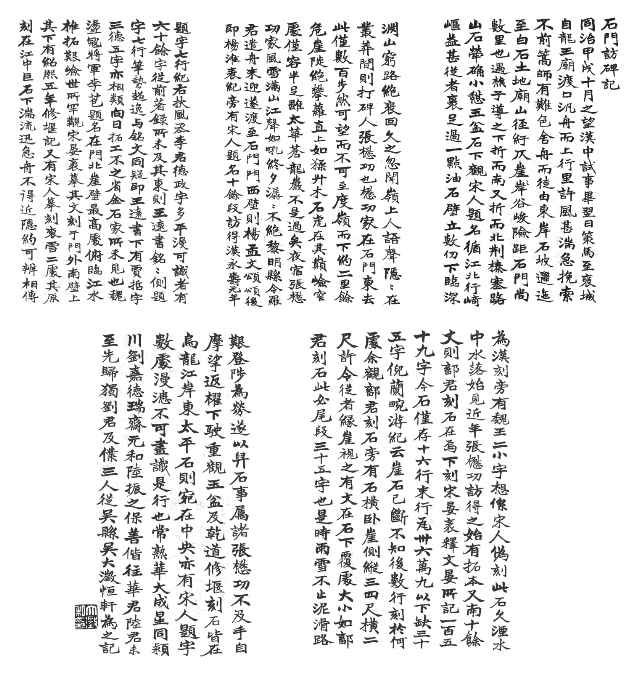 石門訪碑記
同治甲戌十月之望漢中試事畢翌日策馬至褒城
自龍王廟渡口汎舟而上行里許風甚湍急挽索
不前篙師有難色舍舟而徒由東岸石坡邐迤
至白石土地廟山徑紆仄崖岸谷峻險距石門尚
數里也過樵子導之下折而南又折而北荊榛塞路
山石犖确小憩玉盆石下觀宋人題名循江北行崎
嶇益甚從者裹足過一點油石壁立數仞下臨深
淵山窮路絕裵回久之忽聞嶺上人語聲隱〻在
叢莽間則打碑人張懋功也懋功家在石門東去
此僅數百步然可望而不可至度嶺而下約二里餘
危崖陡絕攀蘿直上如猱升木石虎在其巔崄窄
處僅容半足雖太華蒼龍巖不是過矣夜宿張懋
功家風雪滿山江聲如吼終夕潺〻不絕黎明縣令羅
君遣舟來迎遂渡至石門門西壁則楊孟文頌頌後
即楊淮表紀旁有宋人題名十餘段訪得漢永壽元年
題字七行紀右扶風丞李君德政字多平漫可識者有
六十餘字從前著錄所未及其東則王遠書銘〻側題
字七行筆勢超逸與銘文同疑即王遠書下有賈哲字
三德五字亦相類向日拓工不之省金石家所未見也魏
盪寇將軍李苞題名在門北崖壁最高處俯臨江水
椎拓艱崄世所罕觀宋晏袤摹其文刻于門外南壁上
其下有銘熙五年修堰記又有宋人摹刻袞雪二處其原
刻在江中巨石下湍流迅急舟不得近隱約可辨相傳
為漢刻旁有魏王二小字想係宋人偽刻此石久湮水
中水落始見近年張懋功訪得之始有拓本又南十餘
丈則鄐君刻石在焉下刻宋晏袤釋文晏所記一百五
十九字今石僅存十六行末行瓦卅六萬九以下缺三十
五字倪蘭畹游紀云崖石已斷不知後數行刻於何
處余觀鄐君刻石旁有石橫臥崖側縱三四尺橫二
尺許令從者緣崖視之有文在石下覆處大小如鄐
君刻石此必尾段三十五字也是時雨雪不止泥滑路
艱登陟為勞遂以升石事屬諸張懋功不及手自
摩挲返櫂下駛重觀玉盆及乾道修堰刻石皆在
烏龍江岸東太平石則宛在中央亦有宋人題字
數處漫漶不可盡識是行也常熟華大成星同潁
川劉嘉德瑞齋元和陸振之保善偕往華君陸君未
至先歸獨劉君及僕三人從吳縣吳大澂恒軒為之記